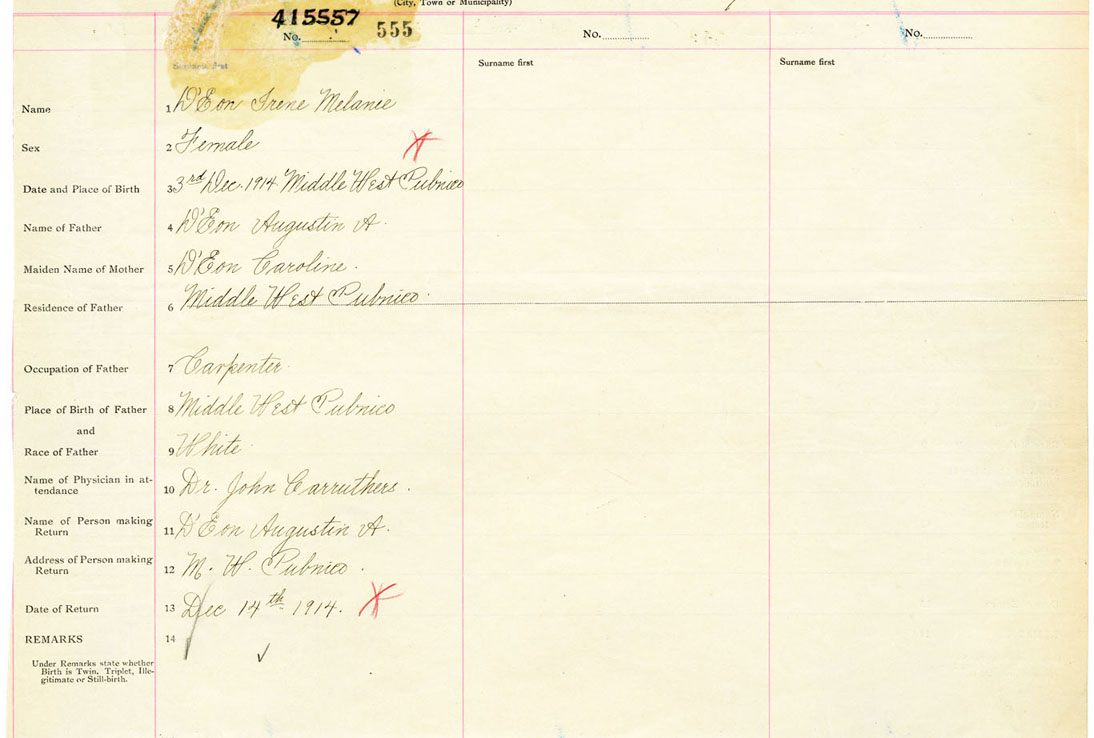 (City, Town or Municipality)
415557
No. 555
No.
No.
Surname first
Surname first
Surname first
Name 1 D'Eon Irene Melanie
Sex 2 Female
Date and Place of Birth 3 3rd Dec. 1914 Middle West Pubnico
Name of Father 4 D'Eon Augustin A.
Maiden Name of Mother 5 D'Eon Caroline.
Residence of Father 6 Middle West Pubnico.
Occupation of Father 7 Carpenter.
Place of Birth of Father 8 Middle West Pubnico
and
Race of Father 9 White.
Name of Physician in at-
tendance 10 Dr. John Carruthers.
Name of Person making
Return 11 D'Eon Augustin A.
Address of Person making
Return 12 M. W. Pubnico.
Date of Return 13 Dec 14th 1914.
REMARKS 14
Under Remarks state whether
Birth is Twin, Triplet, Ille-
gitimate or Still-birth.